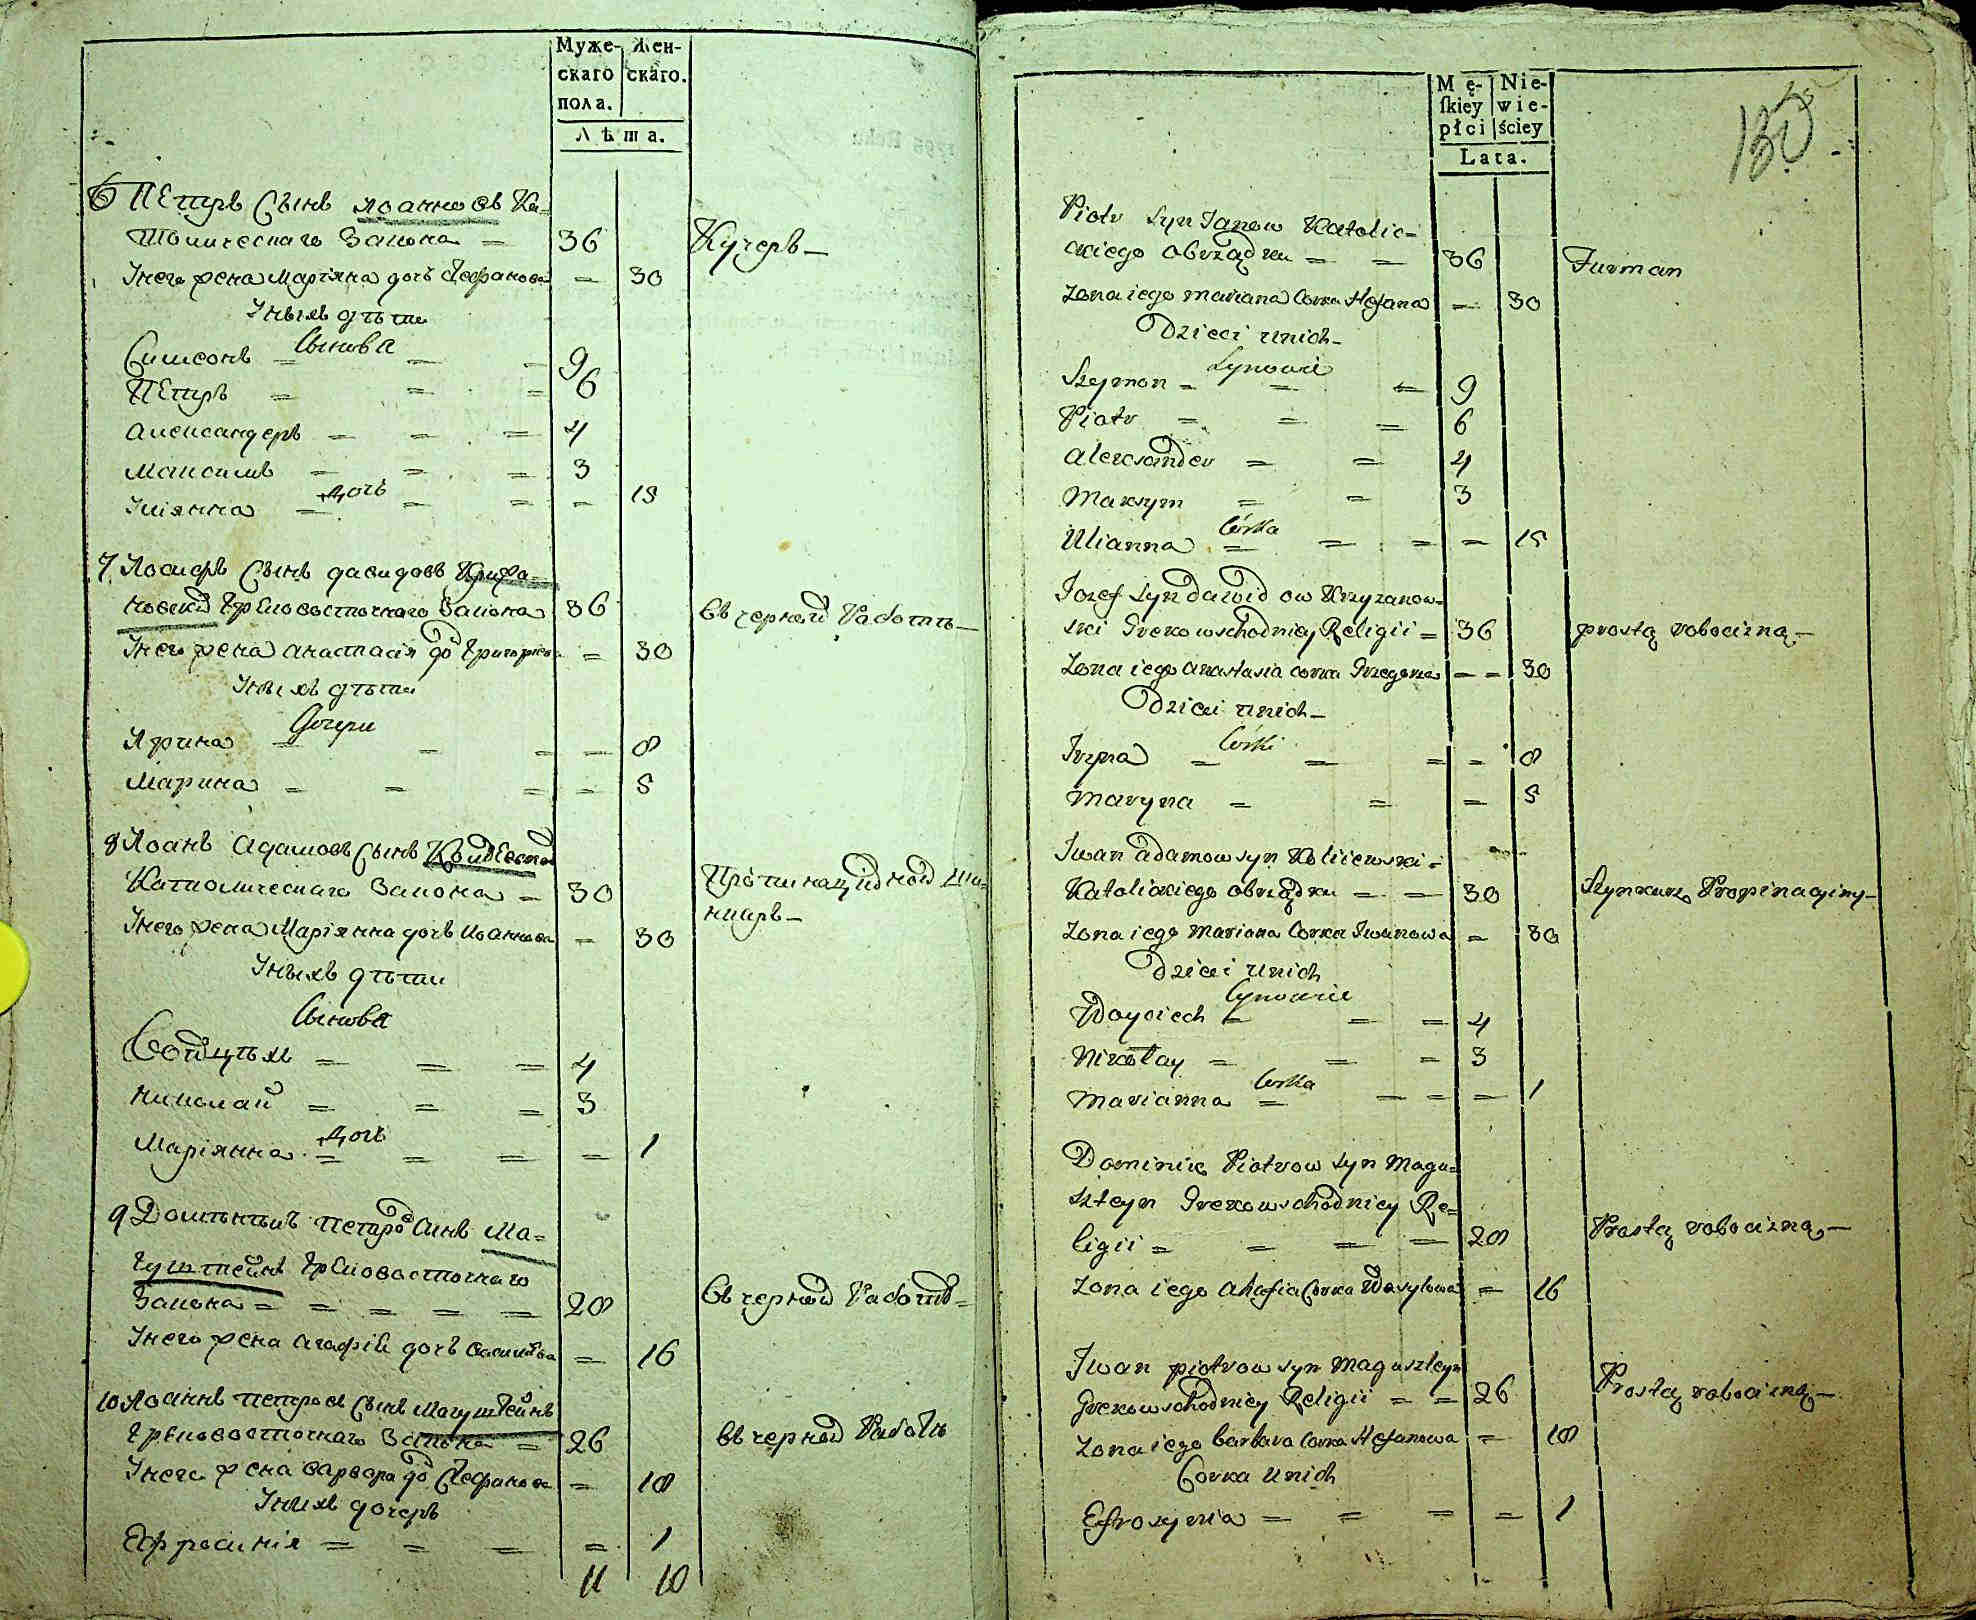 Муже- Жен-
скаго скаго.
пола.
Лѣта.
6 Петръ Сынъ Иоанновъ Ка-
толическаго Закона = 36 Кучеръ
У него жена Марiяна дочь Стефанова = 30
У нихъ дѣти
Сынова
Симеонъ = = = 9
Петръ = = = 6
Александеръ = = = 4
Максимъ = = = 3
Дочь
Улiянна = = = = 15
7 Иосифъ Сынъ Давидовъ Крижа-
новский Грековосточнаго Закона 36 Въ черной Работѣ
У него жена Анастасiя до Григориева = 30
У нихъ дѣти
Дочери
Ирина = = = = 8
Марина = = = = 5
8 Иоанъ Адамовъ Сынъ
Католическаго Закона = 30 Пропинацiйной Шин-
каръ
У него жена Марiянна дочь Иоаннова = 30
У нихъ дѣти
Сынова
Войцѣхъ = = = 4
Николай = = = 3
Дочь
Марiянна = = = = 1
9 Домѣникъ Петровъ Синъ Ма-
гуштейнъ Грековосточнаго
Закона = = = = = 28 Въ черной Работѣ =
У него жена Агафiя дочь Василѣва = 16
10 Иоаннъ Петровъ Сынъ Магуштейнъ
Грековосточнаго Закона = 26 Въ черной Работѣ
У него жена Варвара до Стефанова = 18
У нихъ дочерь
Ефросинiя = = = = 1
11 10
Mę- Nie-
ſkiey wie-
płci ściey
Lata.
130
Piotr Syn Janow Katolic-
kiego Obrządku = = 36 Furman
Zona iego Mariana Corka Stefana = 30
Dzieci unich
Synowie
Szymon = = = 9
Piotr = = = 6
Alexander = = 4
Maxym = = 3
Córka
Ulianna = = = = 15
Jozef Syn Dawidow Krzyzanow-
ski Grekowschodniey Religii = 36 prostą robocizną
Zona iego Anastasia corka Grzegorza = = 30
Dzieci unich
Córki
Jryna = = = = 8
Maryna = = = 5
Iwan Adamow syn Koliiewski
Katolickiego obrządku = = 30 Szynkarz Propinacyiny
Zona iego Mariana Corka Iwanowa = 30
Dzieci unich
Synowie
Woyciech = = = 4
Nikołay = = = 3
Corka
Marianna = = = = 1
Dominik Piotrow syn Magu-
szteyn Grekowschodniey Re-
ligii = = = = 28 Prostą robocizną
Zona iego Ahafia Corka Wasylowa = 16
Iwan piotrow syn Maguszteyn
Grekowschodniey Religii = = 26 Prostą robocizną
Zona iego barbara Corka Stefanowa = 18
Corka unich
Efrozynia = = = = 1